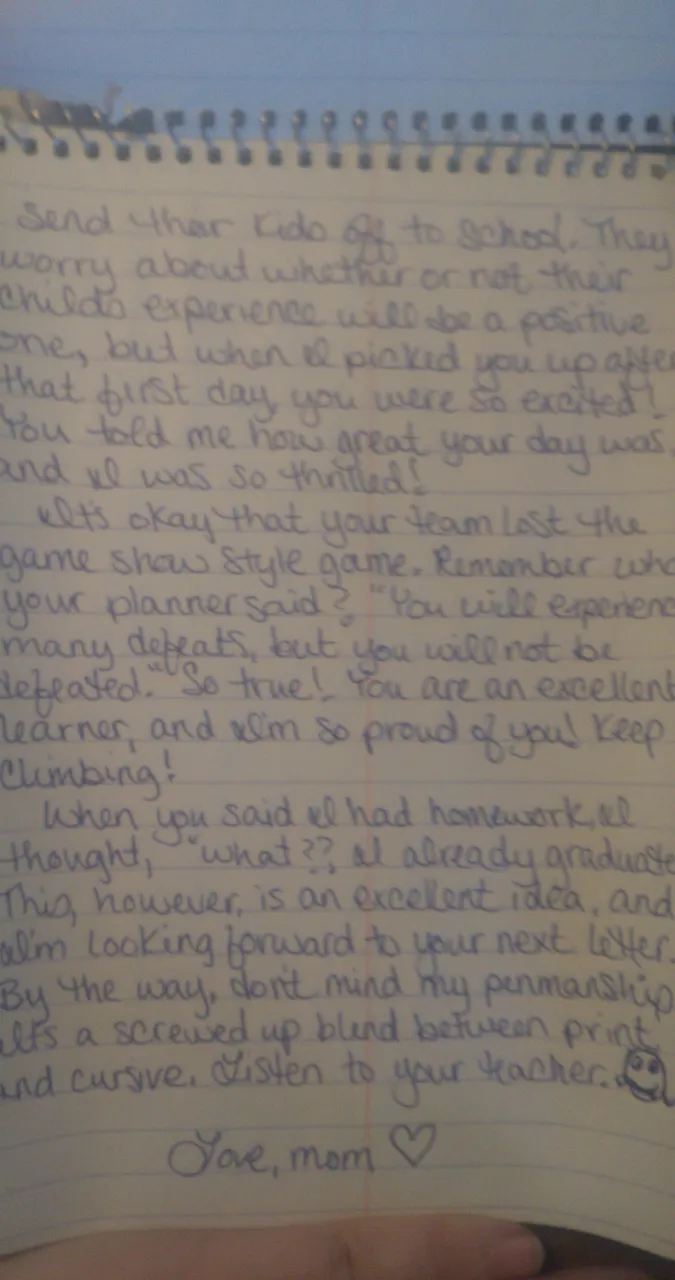 Send their kids off to school. They
worry about whether or not their
childs experience will be a positive
one, but when I picked you up after
that first day, you were so excited!
You told me how great your day was,
and I was so thrilled!
It's okay that your team lost the
game show style game. Remember wha
your planner said? "You will experienc
many defeats, but you will not be
defeated." So true! You are an excellent
learner, and I'm so proud of you! Keep
Climbing!
When you said I had homework, I
thought, "what?? I already graduate
This, however, is an excellent idea, and
I'm looking forward to your next letter.
By the way, don't mind my penmanship
It's a screwed up blend between print
and cursive. Listen to your teacher.
Love, mom ♡